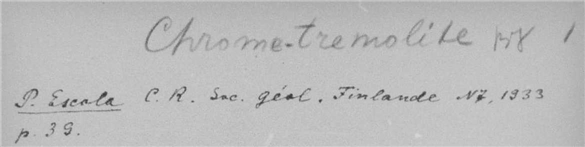 Chrome-tremolite 1
P. Escola C. R. Soc. géol. Finlande N7, 1933
p. 39.